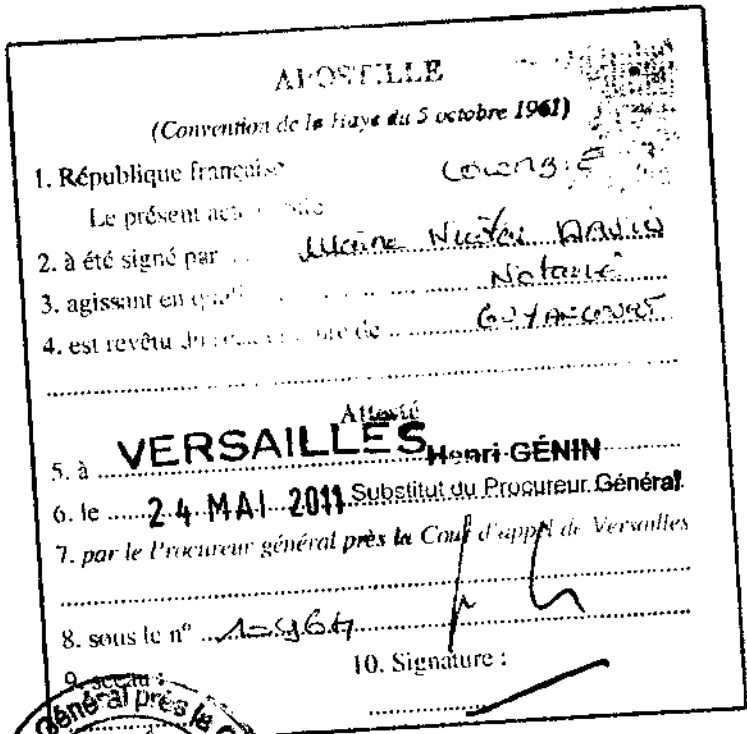 APOSTILLE
(Convention de la Haye du 5 octobre 1961)
1. République française
Le présent acte
2. à été signé par
3. agissant en qualité Notaire
4. est revêtu du de GUYANCOURT
Attesté
5. à VERSAILLES Henri GÉNIN
6. le 24 MAI 2011 Substitut du Procureur Général
7. par le Procureur général près la Cour d'appel de Versailles
8. sous le n°
9. sceau : 10. Signature :
Général près la